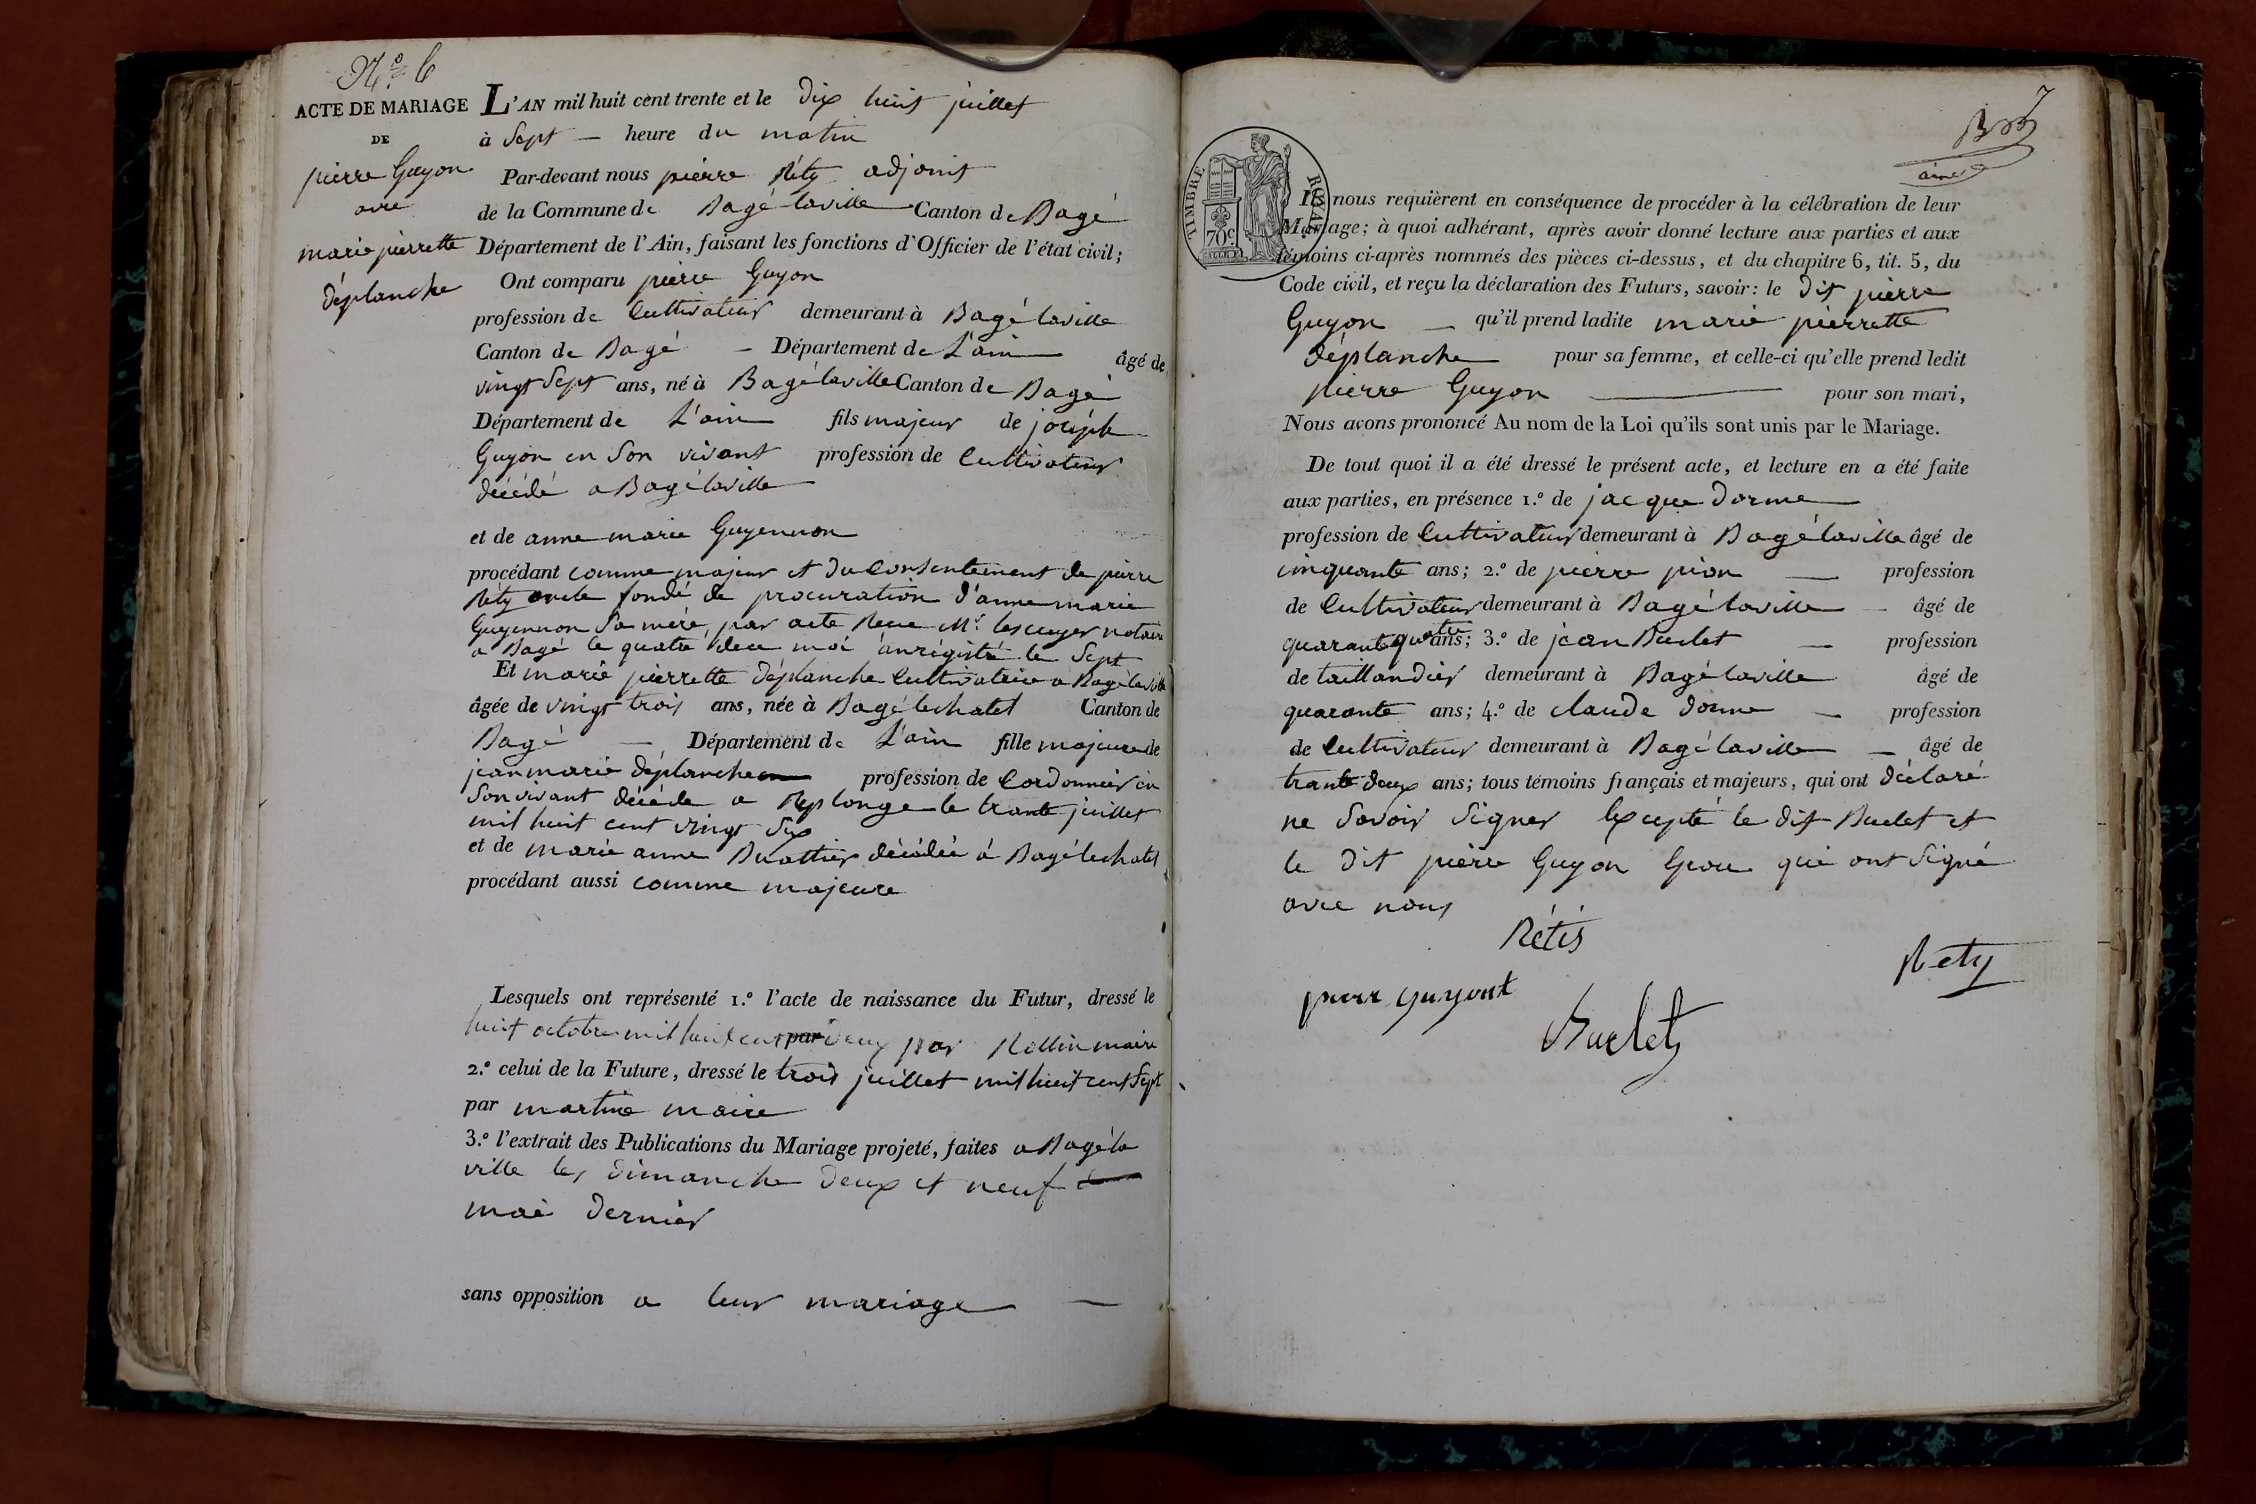 N.° 6
ACTE DE MARIAGE
DE
pierre Guyon
avec
marie pierrette
déplanche
L'AN mil huit cent trente et le dix huit juillet
à Sept — heure du matin
Par-devant nous pierre Réty adjoint
de la Commune de Bagé laville Canton de Bagé
Département de l'Ain, faisant les fonctions d'Officier de l'état civil;
Ont comparu pierre Guyon
profession de Cultivateur demeurant à Bagé laville
Canton de Bagé — Département de L'ain âgé de
vingt Sept ans, né à Bagé laville Canton de Bagé
Département de L'ain fils majeur de joseph
Guyon en Son vivant profession de Cultivateur
décédé a Bagé laville
et de anne marie Guyennon
procédant comme majeur et du Consentement de pierre
Réty oncle fondé de procuration d'anne marie
Guyennon Sa mére, par acte Recu M.r lescuyer notaire
a Bagé le quatre du moi enrégistré le Sept
Et marie pierrette déplanche Cultivatrice a Bagé laville
âgée de vingt trois ans, née à Bagé lechatel Canton de
Bagé — Département de L'ain fille majeure de
jean marie déplanche profession de Cordonnier en
Son vivant décédé a Replonge le trante juillet
mil huit cent vingt Six
et de marie anne Buathier décédée á Bagé lechatel
procédant aussi comme majeure
Lesquels ont représenté 1.° l'acte de naissance du Futur, dressé le
huit octobre mil huit cent par deux par Rollin maire
2.° celui de la Future, dressé le trois juillet mil huit cent Sept
par martine maire
3.° l'extrait des Publications du Mariage projeté, faites a Bagé la
ville les dimanche deux et neuf
mai dernier
sans opposition a leur mariage —
TIMBRE ROYAL
70c
Ils nous requièrent en conséquence de procéder à la célébration de leur
Mariage; à quoi adhérant, après avoir donné lecture aux parties et aux
témoins ci-après nommés des pièces ci-dessus, et du chapitre 6, tit. 5, du
Code civil, et reçu la déclaration des Futurs, savoir: le dit pierre
Guyon — qu'il prend ladite marie pierrette
déplanche pour sa femme, et celle-ci qu'elle prend ledit
pierre Guyon — pour son mari,
Nous avons prononcé Au nom de la Loi qu'ils sont unis par le Mariage.
De tout quoi il a été dressé le présent acte, et lecture en a été faite
aux parties, en présence 1.° de jacque Dorme
profession de Cultivateur demeurant à Bagé laville âgé de
cinquante ans; 2.° de pierre pion — profession
de Cultivateur demeurant à Bagé laville — âgé de
quarante quatre ans; 3.° de jean Burlet — profession
de taillandier demeurant à Bagé laville âgé de
quarante ans; 4.° de claude Donne — profession
de Cultivateur demeurant à Bagé laville — âgé de
trante deux ans; tous témoins français et majeurs, qui ont déclaré
ne Savoir Signer Excepté le dit Burlet et
le dit pierre Guyon Epou qui ont Signé
avec nous
Rétis
Réty
pierr guyont
Burlet